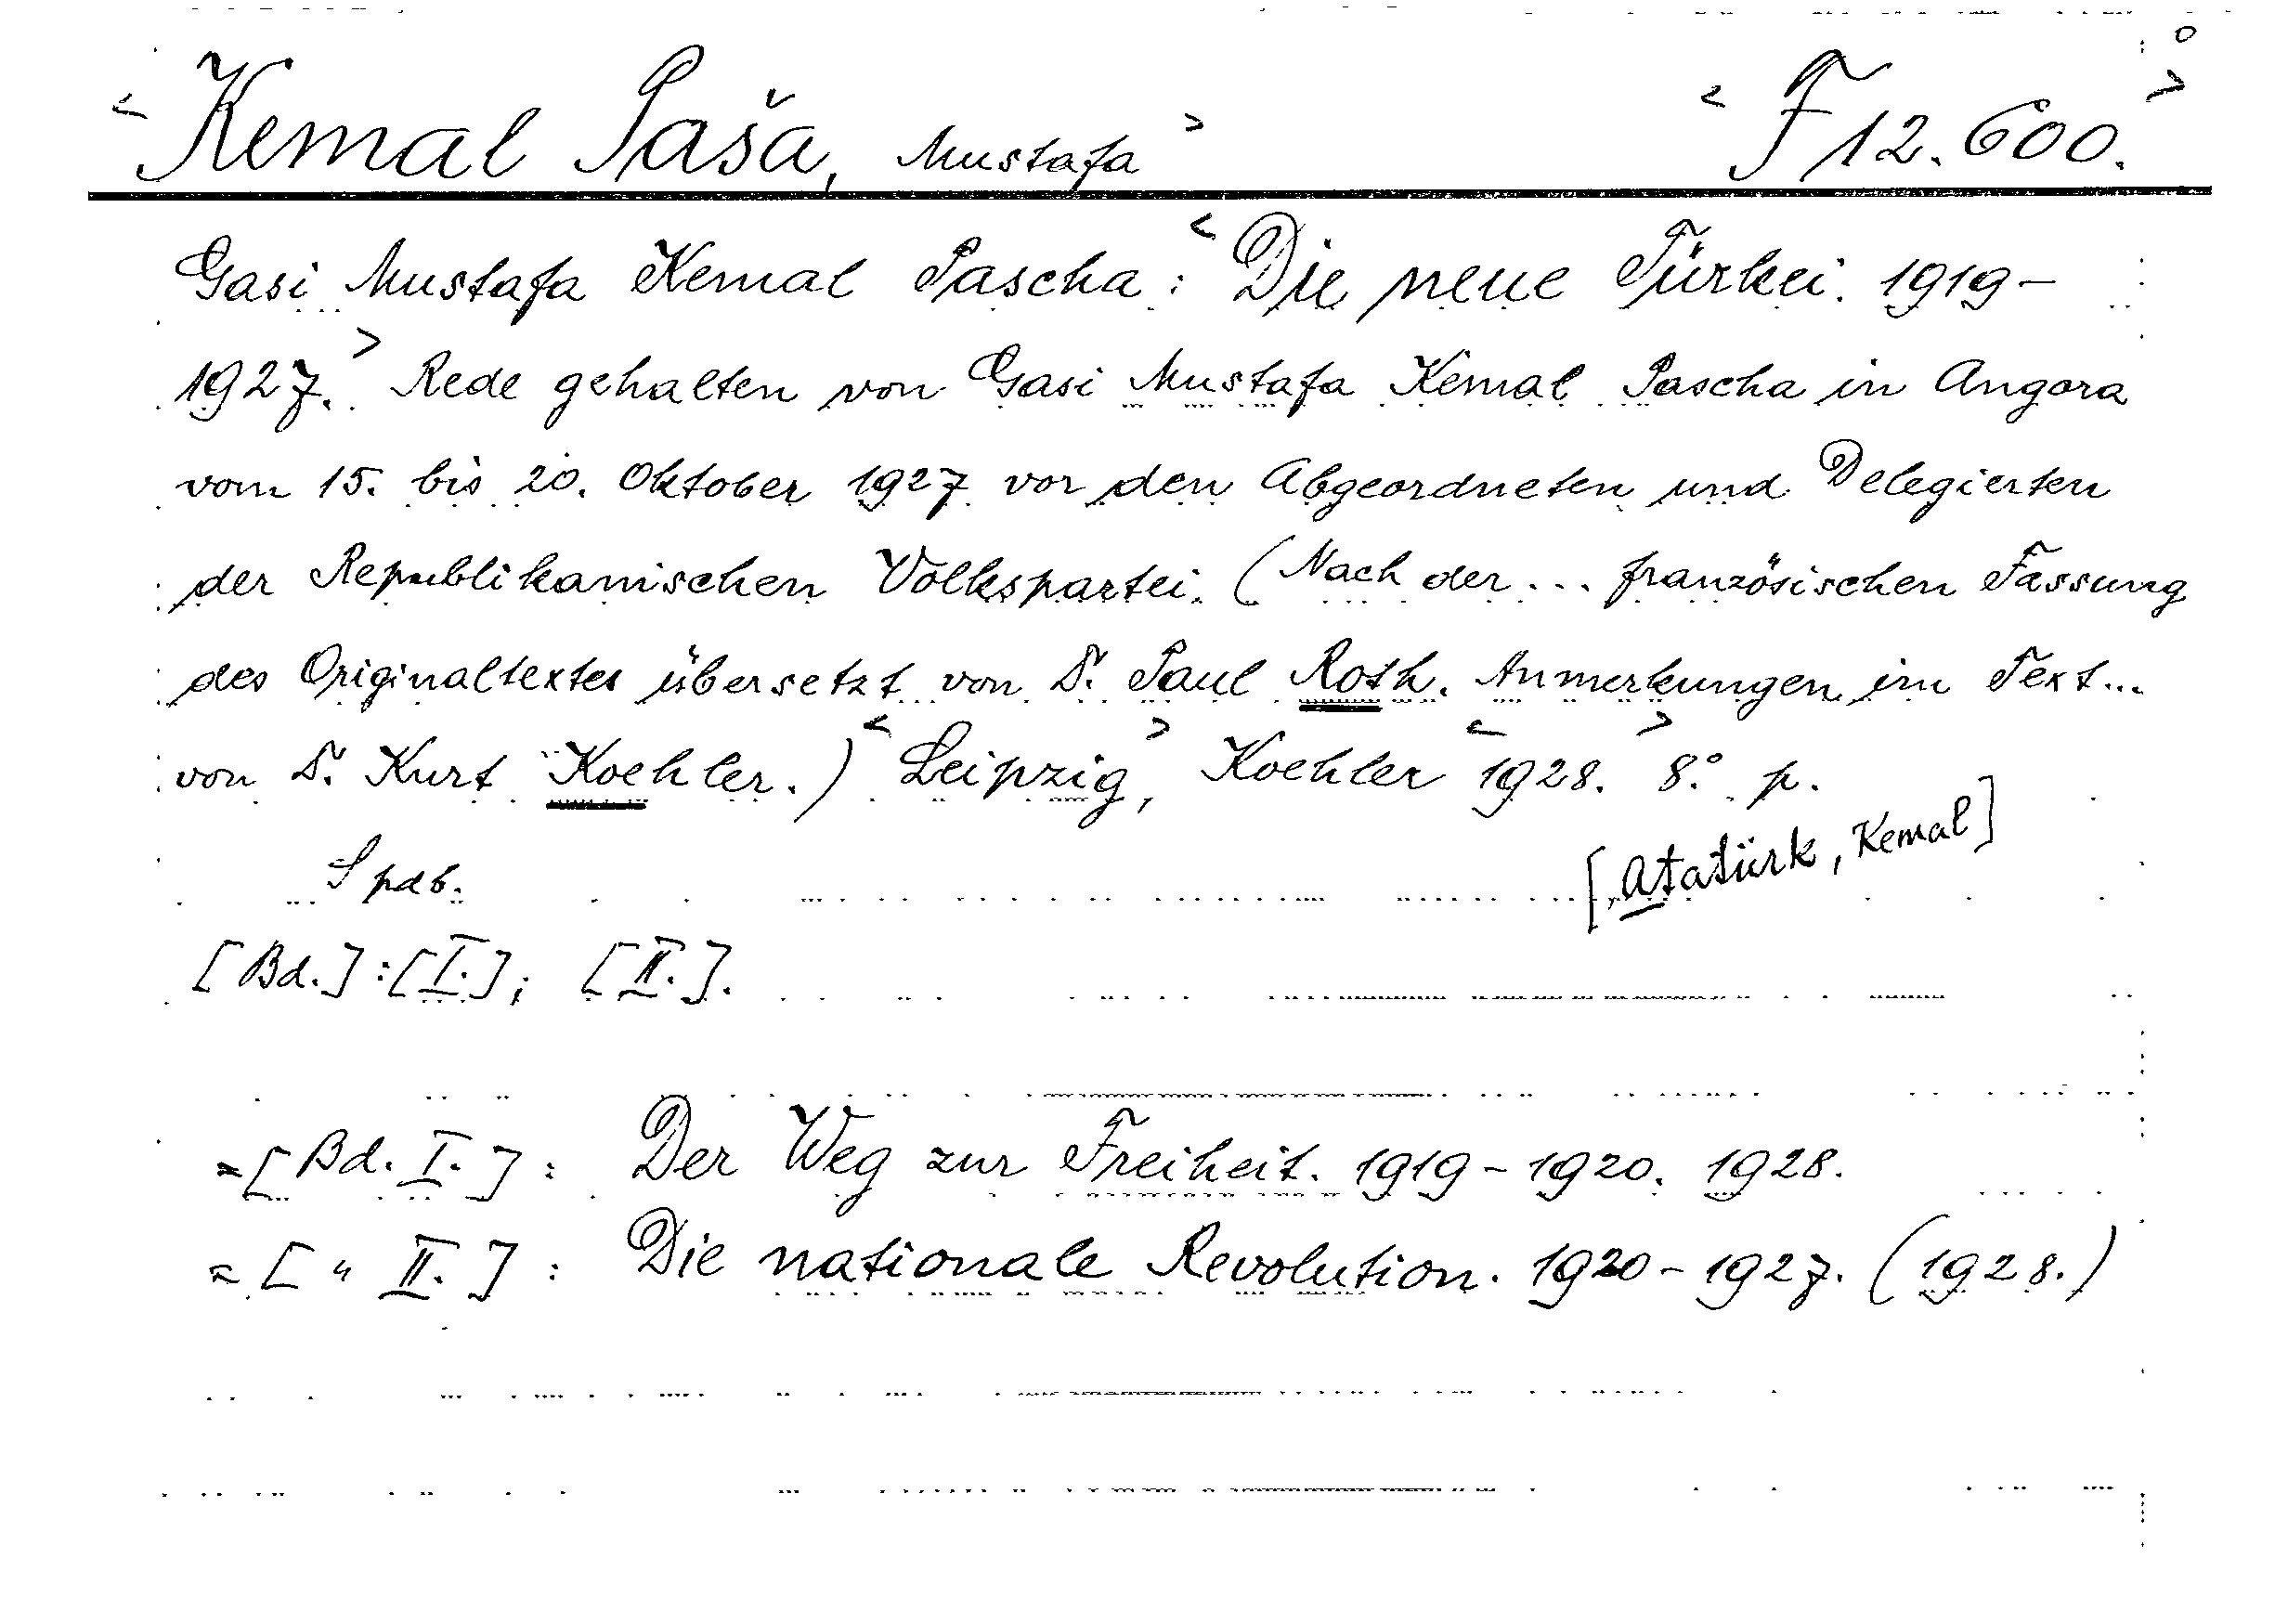 < Kemal Paša, Mustafa > < F 12.600. >
Gasi Mustafa Kemal Pascha: < Die neue Türkei. 1919-
1927. > Rede gehalten von Gasi Mustafa Kemal Pascha in Angora
vom 15. bis 20. Oktober 1927 vor den Abgeordneten und Delegierten
der Republikanischen Volkspartei. (Nach der ... französischen Fassung
des Originaltextes übersetzt von Dr. Paul Roth. Anmerkungen im Text...
von Dr. Kurt Koehler.) < Leipzig, > Koehler < 1928. > 8.° p.
[Atatürk, Kemal]
[Bd.]:[I.]; [II.].
=[Bd. I.]: Der Weg zur Freiheit. 1919-1920. 1928.
=[ " II.]: Die nationale Revolution. 1920-1927. (1928.)